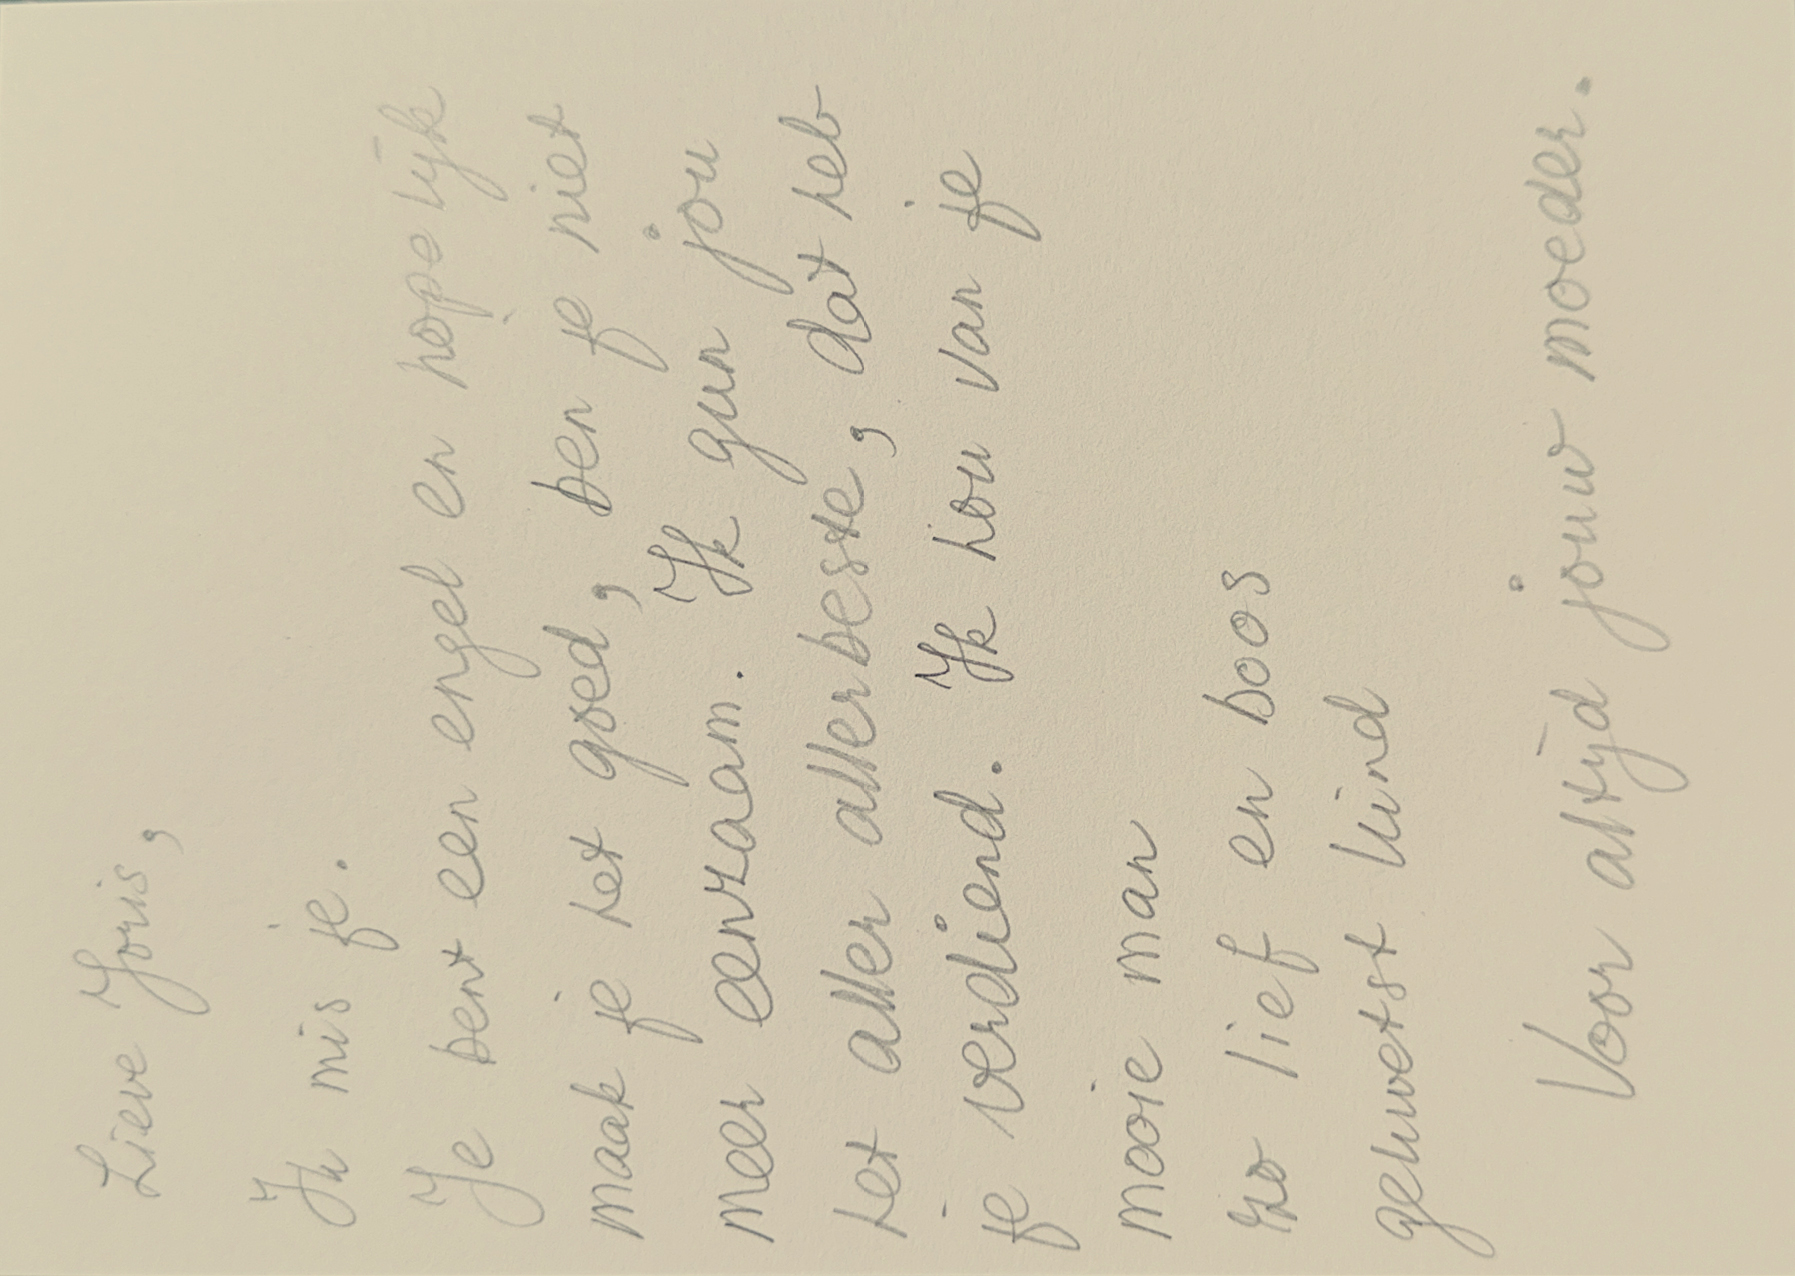 Lieve Joris,
Ik mis je.
Je bent een engel en hopelijk
maak je het goed, ben je niet
meer eenzaam. Ik gun jou
het aller allerbeste, dat heb
je verdiend. Ik hou van je
mooie man
zo lief en boos
gekwetst kind
Voor altijd jouw moeder.